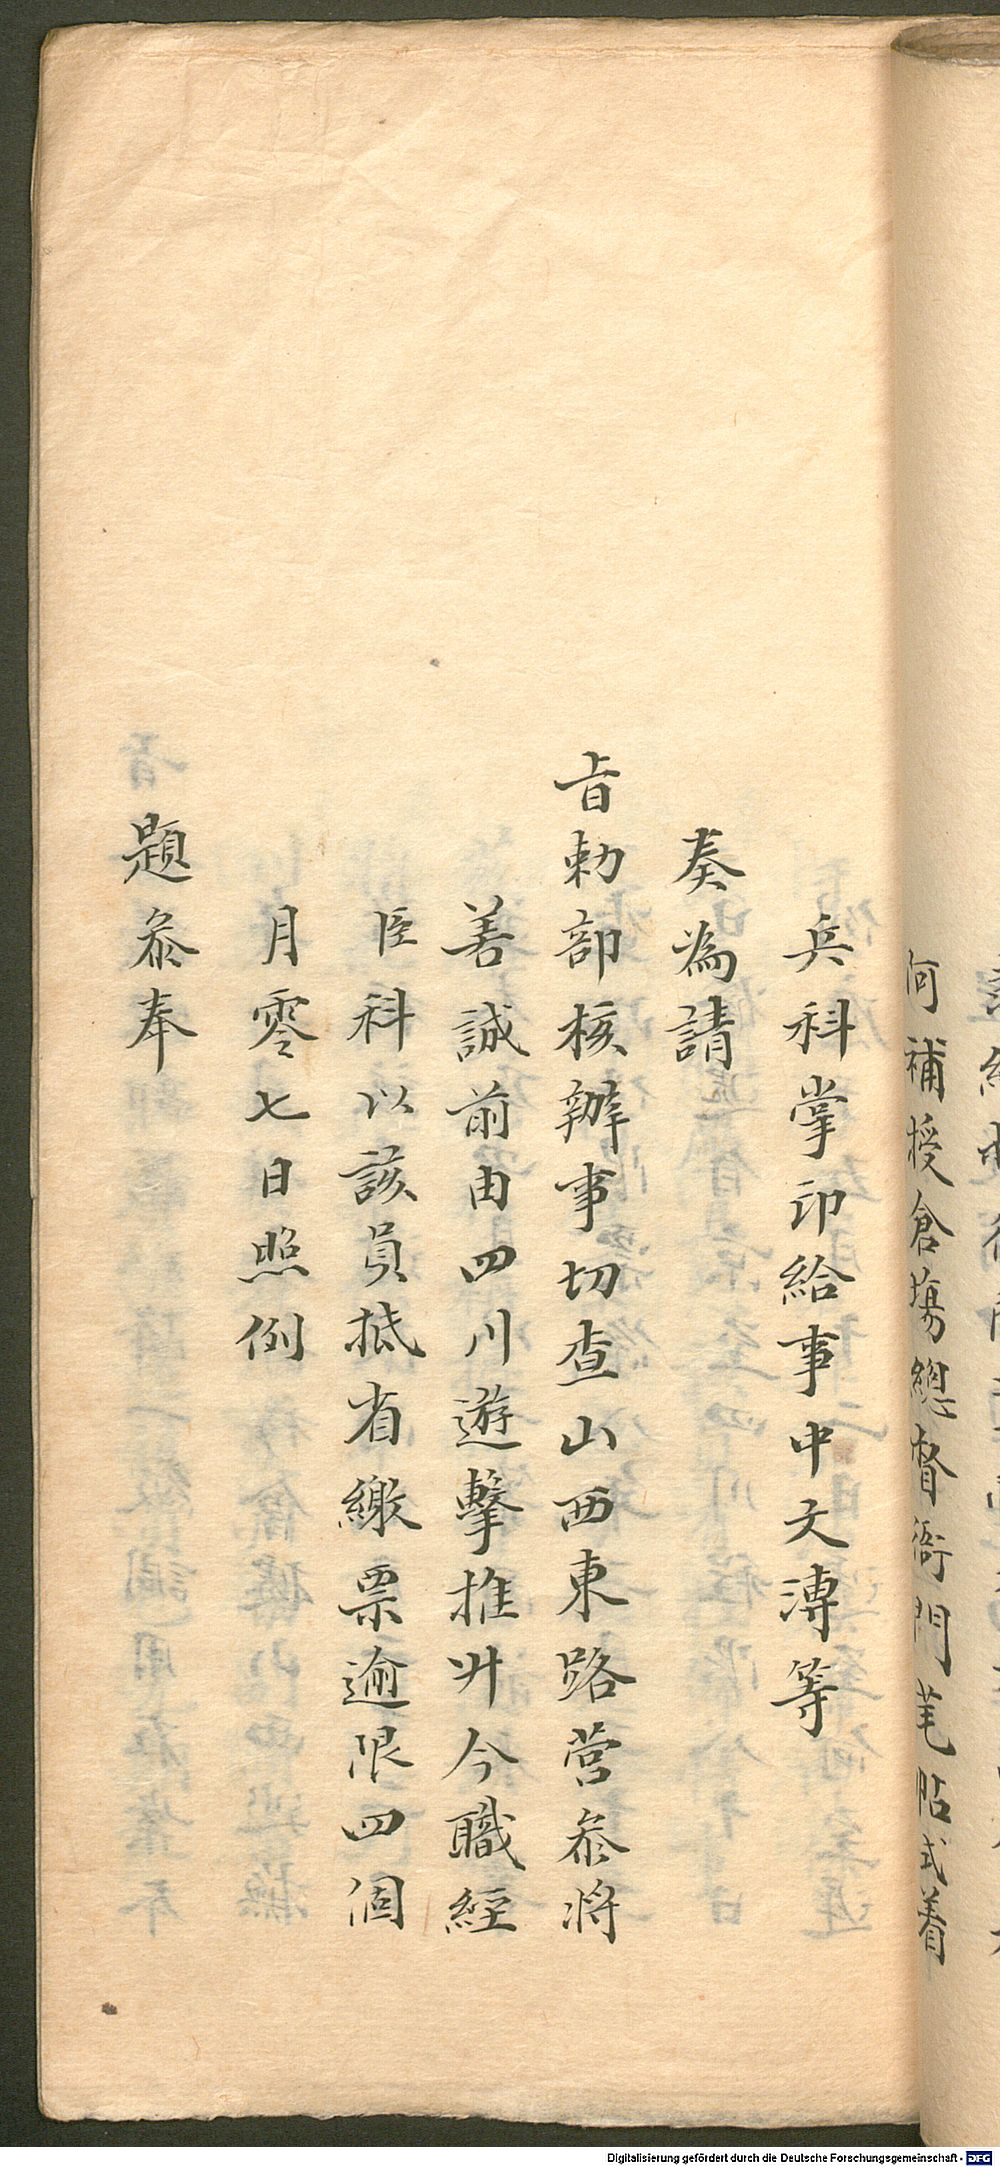 阿補授倉塲總督衙門筆帖式着
兵科掌印給事中文溥等
奏為請
旨勅部核辦事切查山西東路營叅將
善誠前由四川遊擊推升今職經
臣科以該員抵省繳票逾限四個
月零七日照例
題叅奉
Digitalisierung gefördert durch die Deutsche Forschungsgemeinschaft - DFG